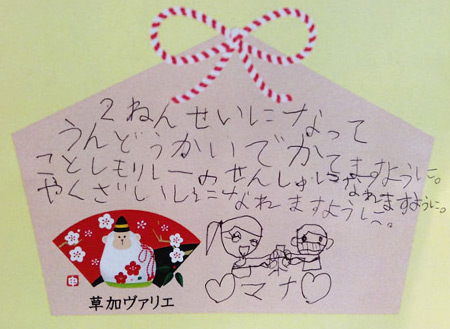 2ねんせいになって
うんどうかいでかてますように。
ことしもリレーのせんしゅになれますように。
やくざいしになれますように。
薬
♡マナ♡
申
草加ヴァリエ